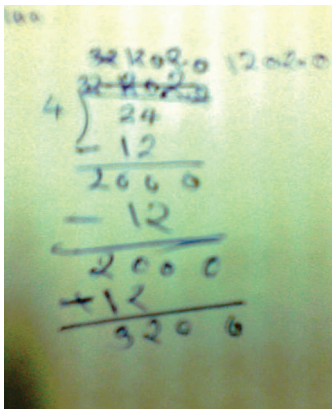 321202.0 1202.0
4
24
- 12
2000
- 12
2000
+12
3200